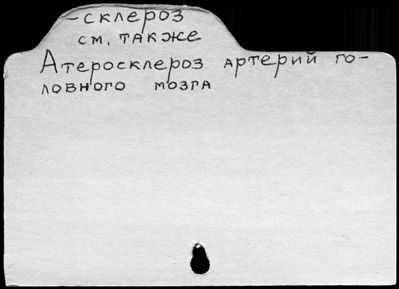 -склероз
см. также
Атеросклероз артерий го-
ловного мозга